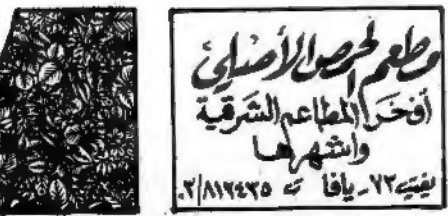 مطعم الحصن الأصلي
أفخر المطاعم الشرقية
واشهرها
يفيت ٧٢ - يافا ت ٠٣/٨١٢٤٣٥